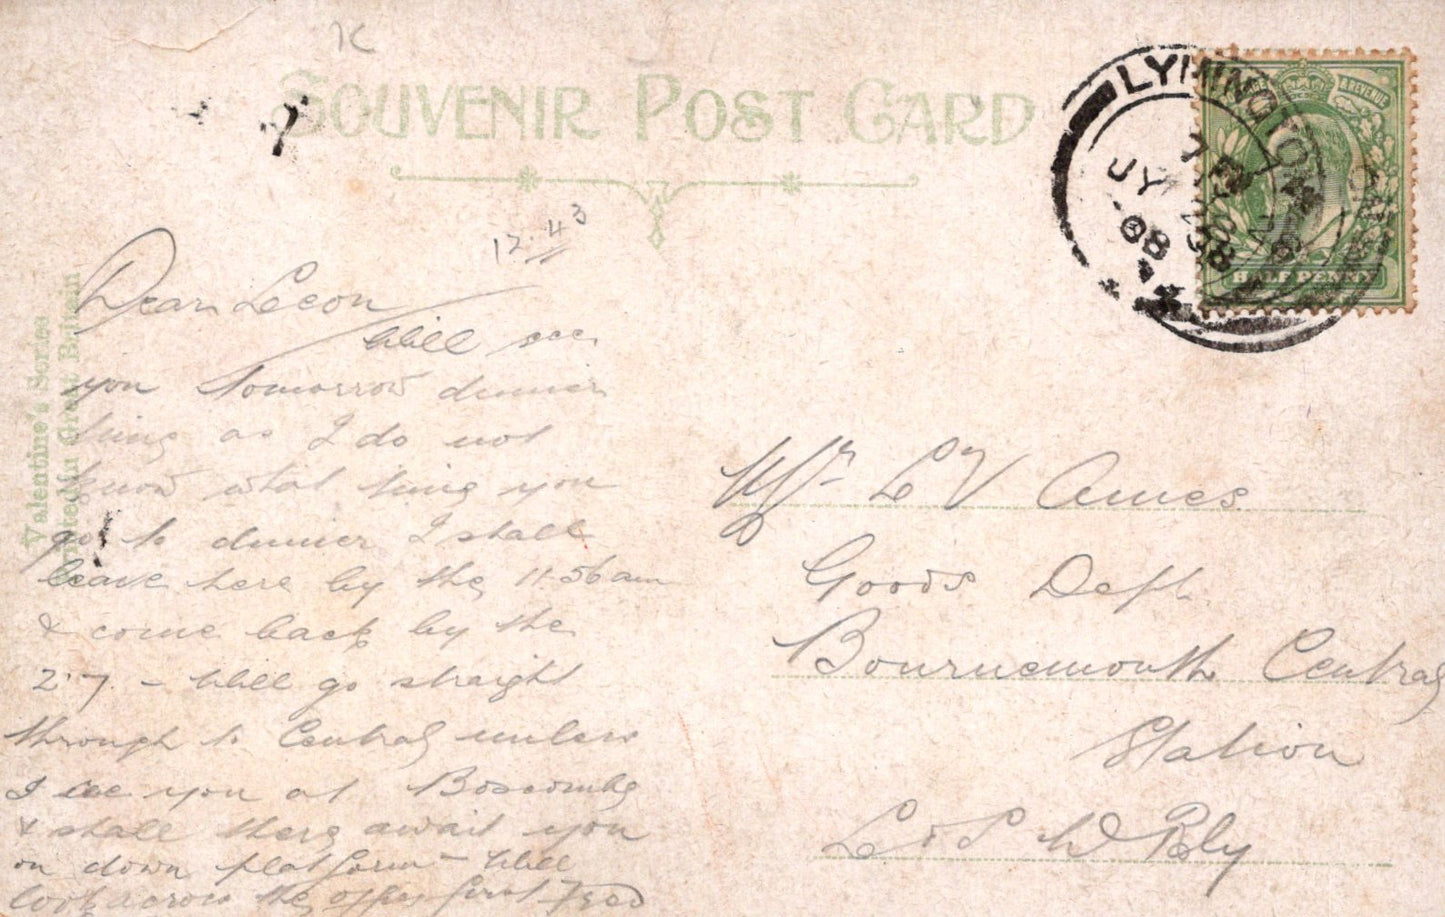 K
SOUVENIR POST CARD
12.43
LYMINGTON
JY
08
REVENUE
HALF PENNY
Valentine's Series
Printed in Great Britain
Dear Leon
Will see
you Tomorrow dinner
time as I do not
know what time you
go to dinner I shall
leave here by the 11.56 am
& come back by the
2.7. - Will go straight
through to Central unless
I see you at Boscombe
& shall there await you
on down platform - Will
look across the office first Fred
Mr L V Ames
Goods Dept
Bournemouth Central
Station
L & S W Rly